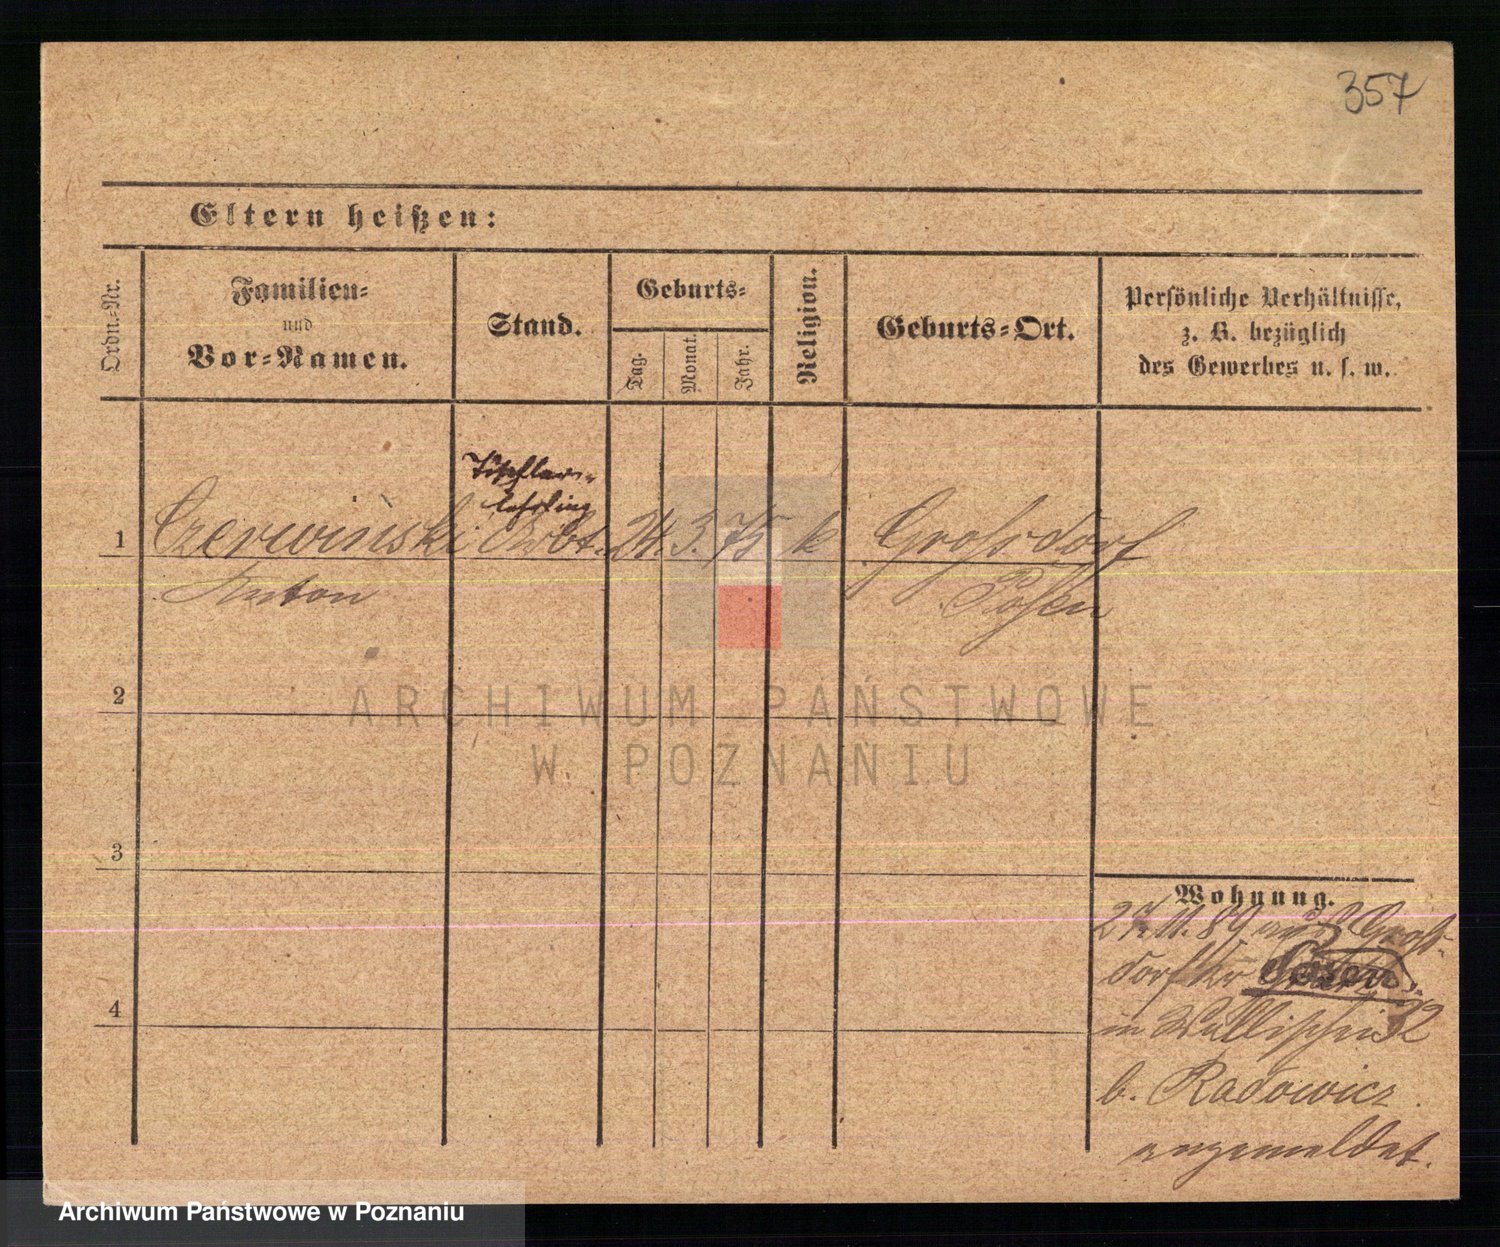 357
Eltern heißen:
Ordn.-Nr.
Familien-
und
Vor-Namen.
Stand.
Geburts-
Tag.
Monat.
Jahr.
Religion.
Geburts-Ort.
Persönliche Verhältnisse,
z. B. bezüglich
des Gewerbes u. s. w.
Tischler-
lehrling
1 Czerwiński Arbt. 24. 3. 75 k Grossdorf
Anton Posen
2
ARCHIWUM PAŃSTWOWE
W POZNANIU
3
Wohnung.
27.11.89 aus Groß-
dorf Kr
4
in Wallischei 32
b. Radowicz
angemeldet.
Archiwum Państwowe w Poznaniu